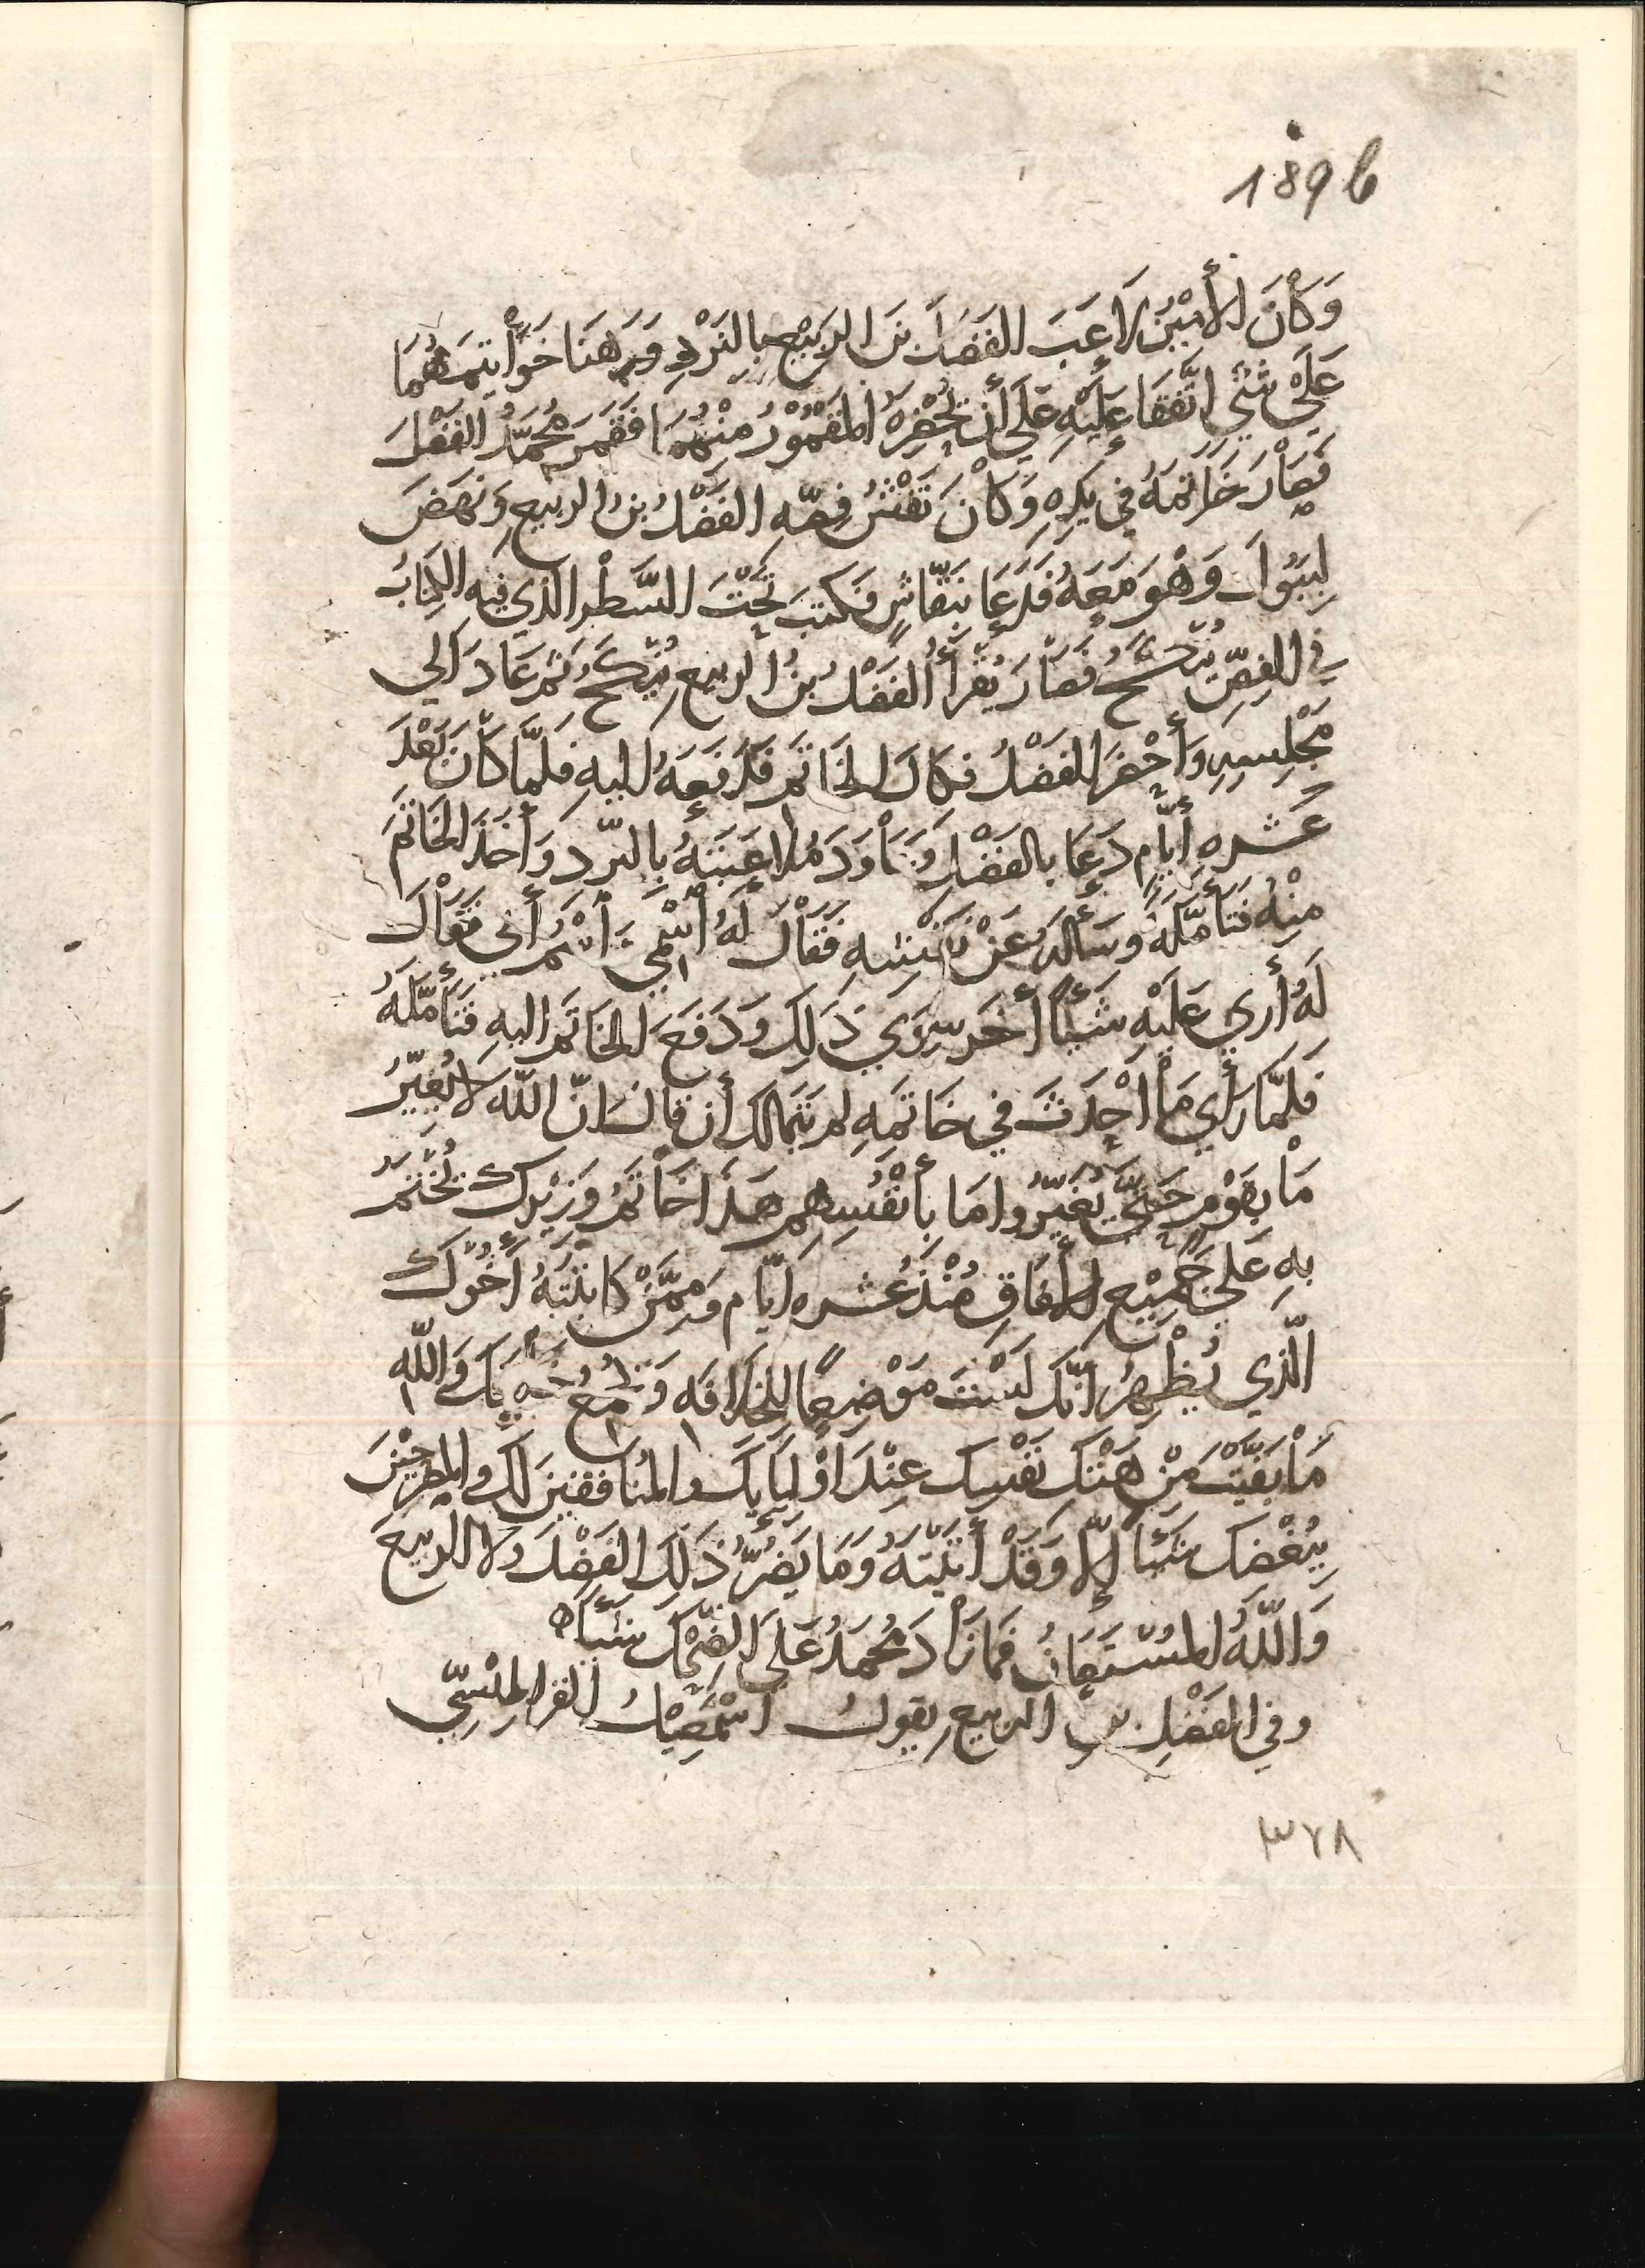 189b
وَكَانَ الأَمِيْنُ لَاعَبَ الفَضْلَ بنَ الرَبِيْعِ بِالنَرْدِ وَرَهَنَا خَوَاتِيمَهُمَا
عَلَى شَيْءٍ اتَّفَقَا عَلَيْهِ عَلَى أَن يُحْضِرَهُ المَقْمُوْرُ مِنْهُمَا فَقَمَرَ مُحَمَّدُ الفَضْلَ
فَصَارَ خَاتَمُهُ فِي يَدِهِ وَكَانَ نَقْشُ فِصِّهِ الفَضْلُ بنُ الربيعِ وَنَهَضَ
لِيَبُوْلَ وَهْوَ مَعَهُ فَدَعَا بنَقّاشٍ فَكَتَبَ تَحْتَ السَّطْرِ الذي فيهِ الكِتابُ
فِي الفِصِّ يُنْكَحُ فَصَارَ يُقْرَأُ الفَضْلُ بنُ الربيعِ يُنْكَحُ ثم عَادَ الي
مَجْلِسِهِ وَأَحْضَرَ الفَضْلُ فكاك الخَاتَمِ فَدَفَعَهُ اليهِ فلمّا كَانَ بَعْدَ
عَشره أَيّامٍ دَعَا بالفَضْلِ وَعَاوَدَ مُلاعَبَتَهُ بِالنّرد وَأَخَذَ الخَاتَمَ
مِنْهُ فَتَأَمَّلَهُ وسَأَلَهُ عَنْ نَقْشِهِ فَقَالَ لَهُ اسْمِي وَاسْمُ أَبي فَقَالَ
لَهُ أَرى عَلَيْهِ شَيْئًا أَخَر سِوَي ذَلِكَ وَدَفَعَ الخَاتَمَ اليهِ فَتَأَمَّلَهُ
فلمّا رَأَي مَا أَحْدَثَ في خَاتَمِهِ لم يَتَمالَك أَن قالَ انّ اللّه لا يُغيّرُ
مَا بِقَوْمٍ حَتّي يُغَيّرُوا مَا بِأَنْفُسِهِم هَذَا خَاتَمُ وَزِيْرِكَ يُخْتَمُ
بِهِ عَلى جَمِيْعِ الأَفَاقِ مُنْذُ عَشره أَيّام وَمِمَّنْ كَاتَبْتَهُ أَخُوْكَ
الّذي يُظْهِرُ انّكَ لَسْتَ مَوْضِعًا لِلخِلافَه وَاللّه
مَا بَقَّيْتَ مِنْ هَتْكِ نَفْسِكَ عِنْدَ اوْلِيَايِكَ والمُنَافقينَ لَكَ والمُصَرِحِيْنَ
بِبُغْضِكَ شَيْئًا إلّا وَقَدْ أَتَيْتَهُ وَمَا يَضُرُّ ذَلِكَ الفَضْلَ ولا الربيعَ
وَاللّهُ المُسْتَعَانُ فَمَا زَادَ مُحَمّدُ عَلَى الضّحْكِ شَيْئًا ه
وفي الفَضْلِ بن الربيعِ يقولُ اسْمَعِيْلُ القراطِيْسِيّ
٣٧٨